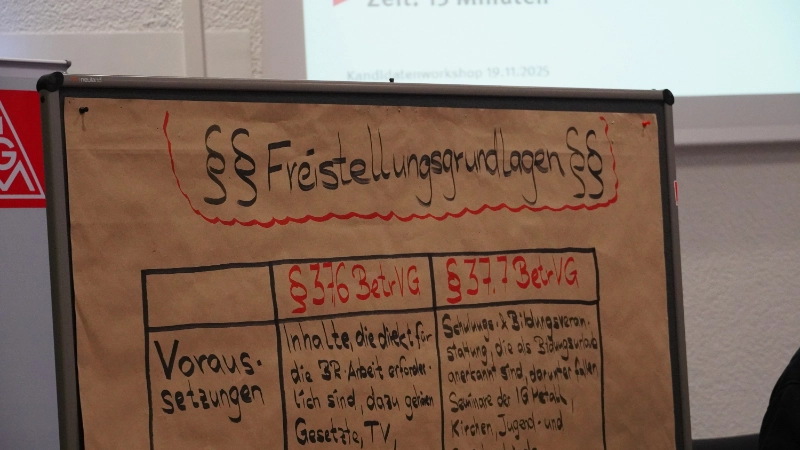 Zeit: 15 Minuten
Kandidatenworkshop 19.11.2025
IGM
§§ Freistellungsgrundlagen §§
§ 37.6 BetrVG
§ 37.7 BetrVG
Voraus-
setzungen
Inhalte, die direkt für
die BR-Arbeit erforder-
lich sind, dazu gehören
Gesetze, TV,
Schulungs- & Bildungsveran-
staltung, die als Bildungsurlaub
anerkannt sind, darunter fallen
Seminare der IG Metall,
Kirchen, Jugend- und